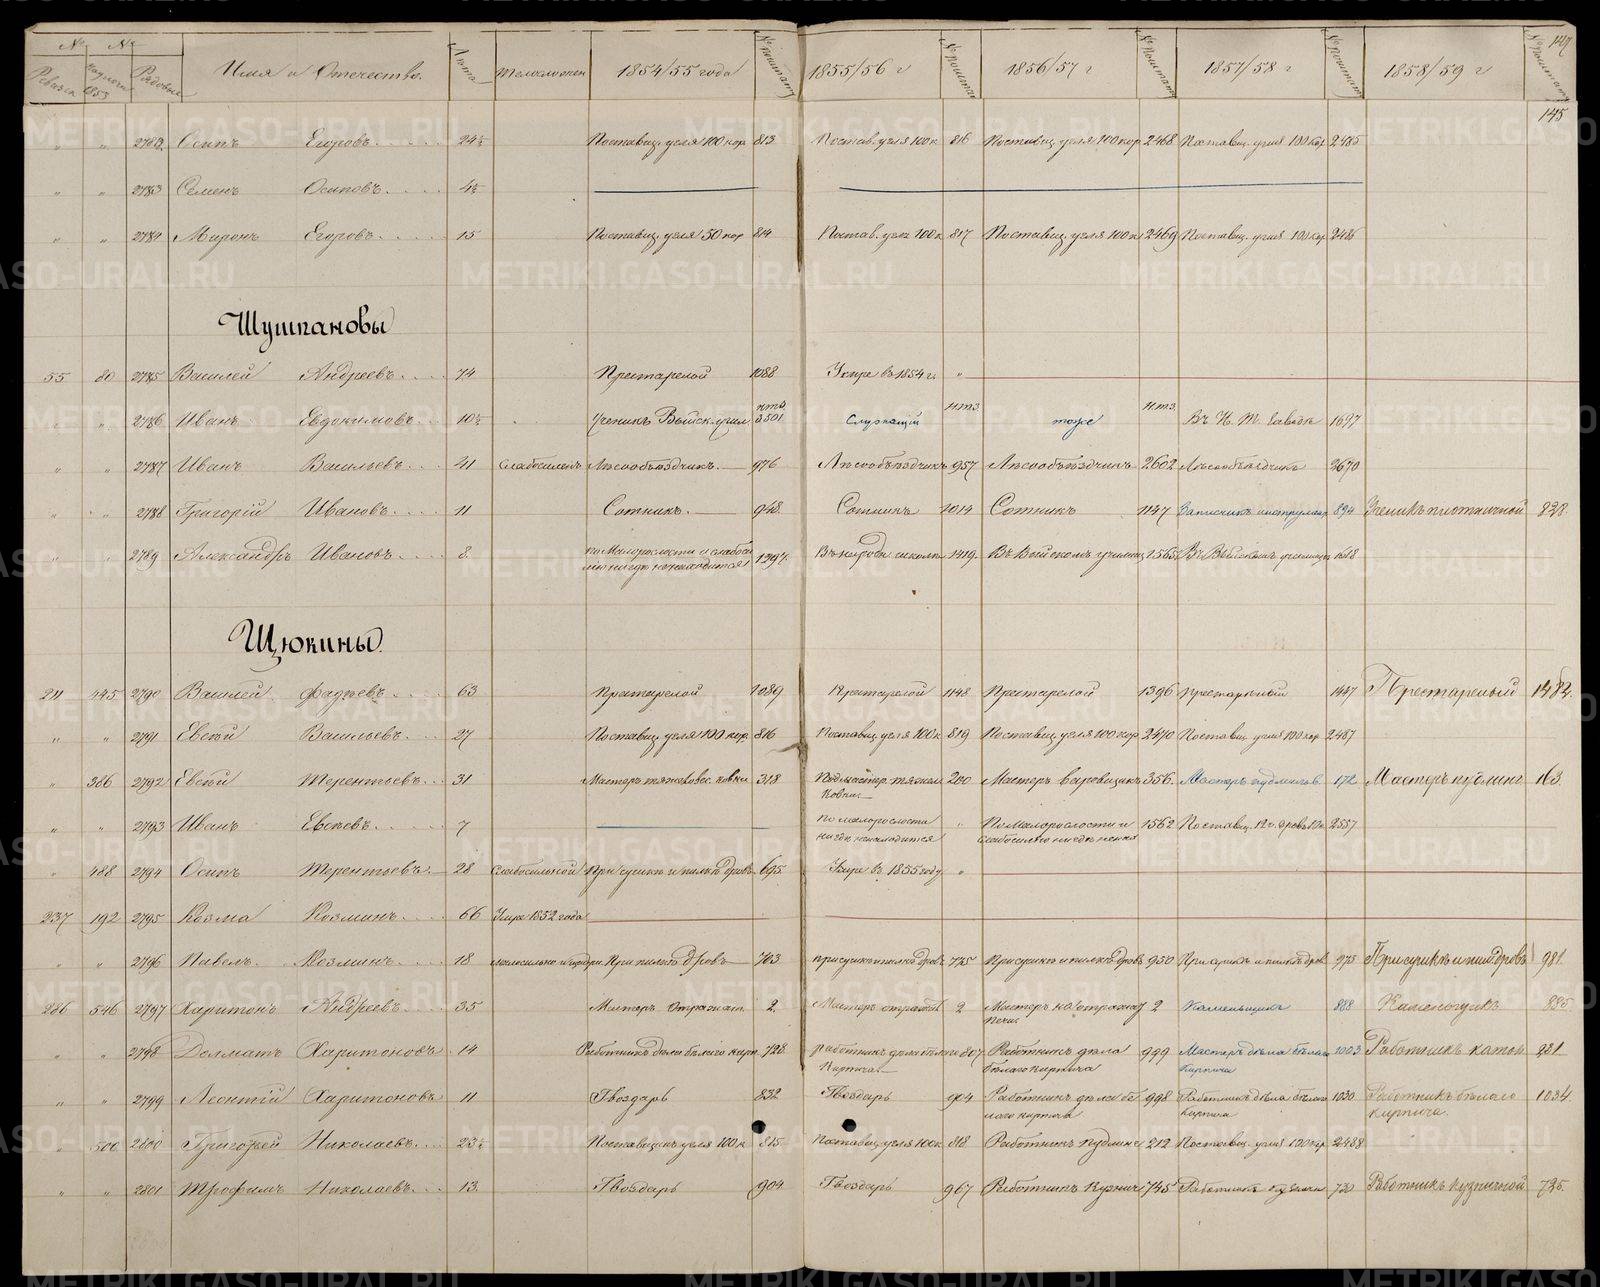 147
№ № Имя и Отчество. Лета Телосложен 1854/55 года № по штату 1855/56 г № по штату 1856/57 г № по штату 1857/58 г № по штату 1858/59 г № по штату
Ревизск 1853 Рядовые
145
" " 2782 Осипъ Егоровъ 24½ Поставщ. угля 100 кор 813 Постав. угля 100 к 816 Поставщ угля 100 кор 2468 Поставщ. угля 100 кор 2485
" " 2783 Семенъ Осиповъ 4½
" " 2784 Миронъ Егоровъ 15 Поставщ. угля 50 кор 814 Постав. угля 100 к 817 Поставщ. угля 100 к 2469 Поставщ. угля 100 кор 2486
Шушпановы
55 80 2785 Василей Андреевъ 74 Престарелой 1088 Умре въ 1854 г. "
" " 2786 Иванъ Евдокимовъ 10½ Ученикъ Выйск. учил. н.т.з. 3501 Служащій н.т.з. тоже н.т.з. Въ Н. Т. Заводе 1697
" " 2787 Иванъ Васильевъ 41 Слабосиленъ Лесообъездчикъ. 976 Лесообъездчикъ 957 Лесообъездчикъ 2602 Лесообъездчикъ 2670
" " 2788 Григорій Ивановъ 11 Сотникъ. 948 Сотникъ 1014 Сотникъ 1147 Записчикъ инструмен 894 Ученикъ плотничной 828
" " 2789 Александръ Ивановъ 8 по Малорослости и слабоси 1297. Въ народн школе 1419. Въ Выйскомъ училищ 1565 Въ Выйскомъ училище 1618
лію нигде не находится
Щюкины
211 445 2790 Василей Фадеевъ 63 Престарелой 1089 Престарелой 1148 Престарелой 1396 Престарелый 1487 Престарелый 1482.
" " 2791 Евсей Васильевъ 27 Поставщ. угля 100 кор 816 Поставщ угля 100 к 819 Поставщ угля 100 кор 2470 Поставщ угля 100 кор 2487
" 386 2792 Евсей Терентьевъ 31 Мастеръ тяжеловес. ковки 318 Подмастер. тяжел 200 Мастеръ варовщикъ 356. Мастеръ пудлингов. 172 Мастеръ пудлинг. 163.
Ковки.
" " 2793 Иванъ Евсеевъ 7 По малорослости " По Малорослости и 1562 Поставщ. 12 ч. дровъ 10 с. 2557
нигде не находится слабосилію нигде не нах
" 488 2794 Осипъ Терентьевъ. 28 Слабосильной При сушке и пилке дровъ. 695 Умре въ 1855 году "
237 192 2795 Козма Козминъ 66 Умре 1852 года
" " 2796 Павелъ. Козминъ 18 При пилке дровъ 703 При сушке и пилке дровъ 775 При сушке и пилке дровъ 950 При сушке и пилке дров 975 При сушке и пил дровъ 981
236 546 2797 Харитонъ Андреевъ 35 Мастеръ отражат. 2. Мастеръ отражат 2 Мастеръ къ отражат 2 Каменьщикъ 888 885
Печи.
" " 2798 Долматъ Харитоновъ 14 Работникъ дела белого кирп 728 Работникъ дела белого 807 Работникъ дела 999 Мастеръ дела белаго 1003 Работникъ 981
Кирпича. белаго кирпича Кирпича
" " 2799 Леонтій Харитоновъ 11 Гвоздарь 832 Гвоздарь 904 Работникъ дела бе 998 Работникъ дела белаго 1030 Работникъ белаго 1034
лаго кирпича кирпича кирпича.
" 500 2800 Григорей Николаевъ 23½ Поставщикъ угля 100 к 815 Поставщ угля 100 к 818 Работникъ пудлинг 212 Поставщ. угля 100 кор 2488
" " 2801 Трофимъ Николаевъ 13 Гвоздарь 904 Гвоздарь 967 Работникъ кузнич 745 Работникъ кузнич 720 Работникъ кузничной 725.